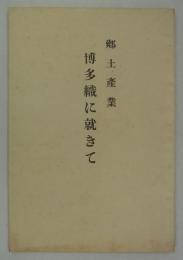 郷土産業
博多織に就きて